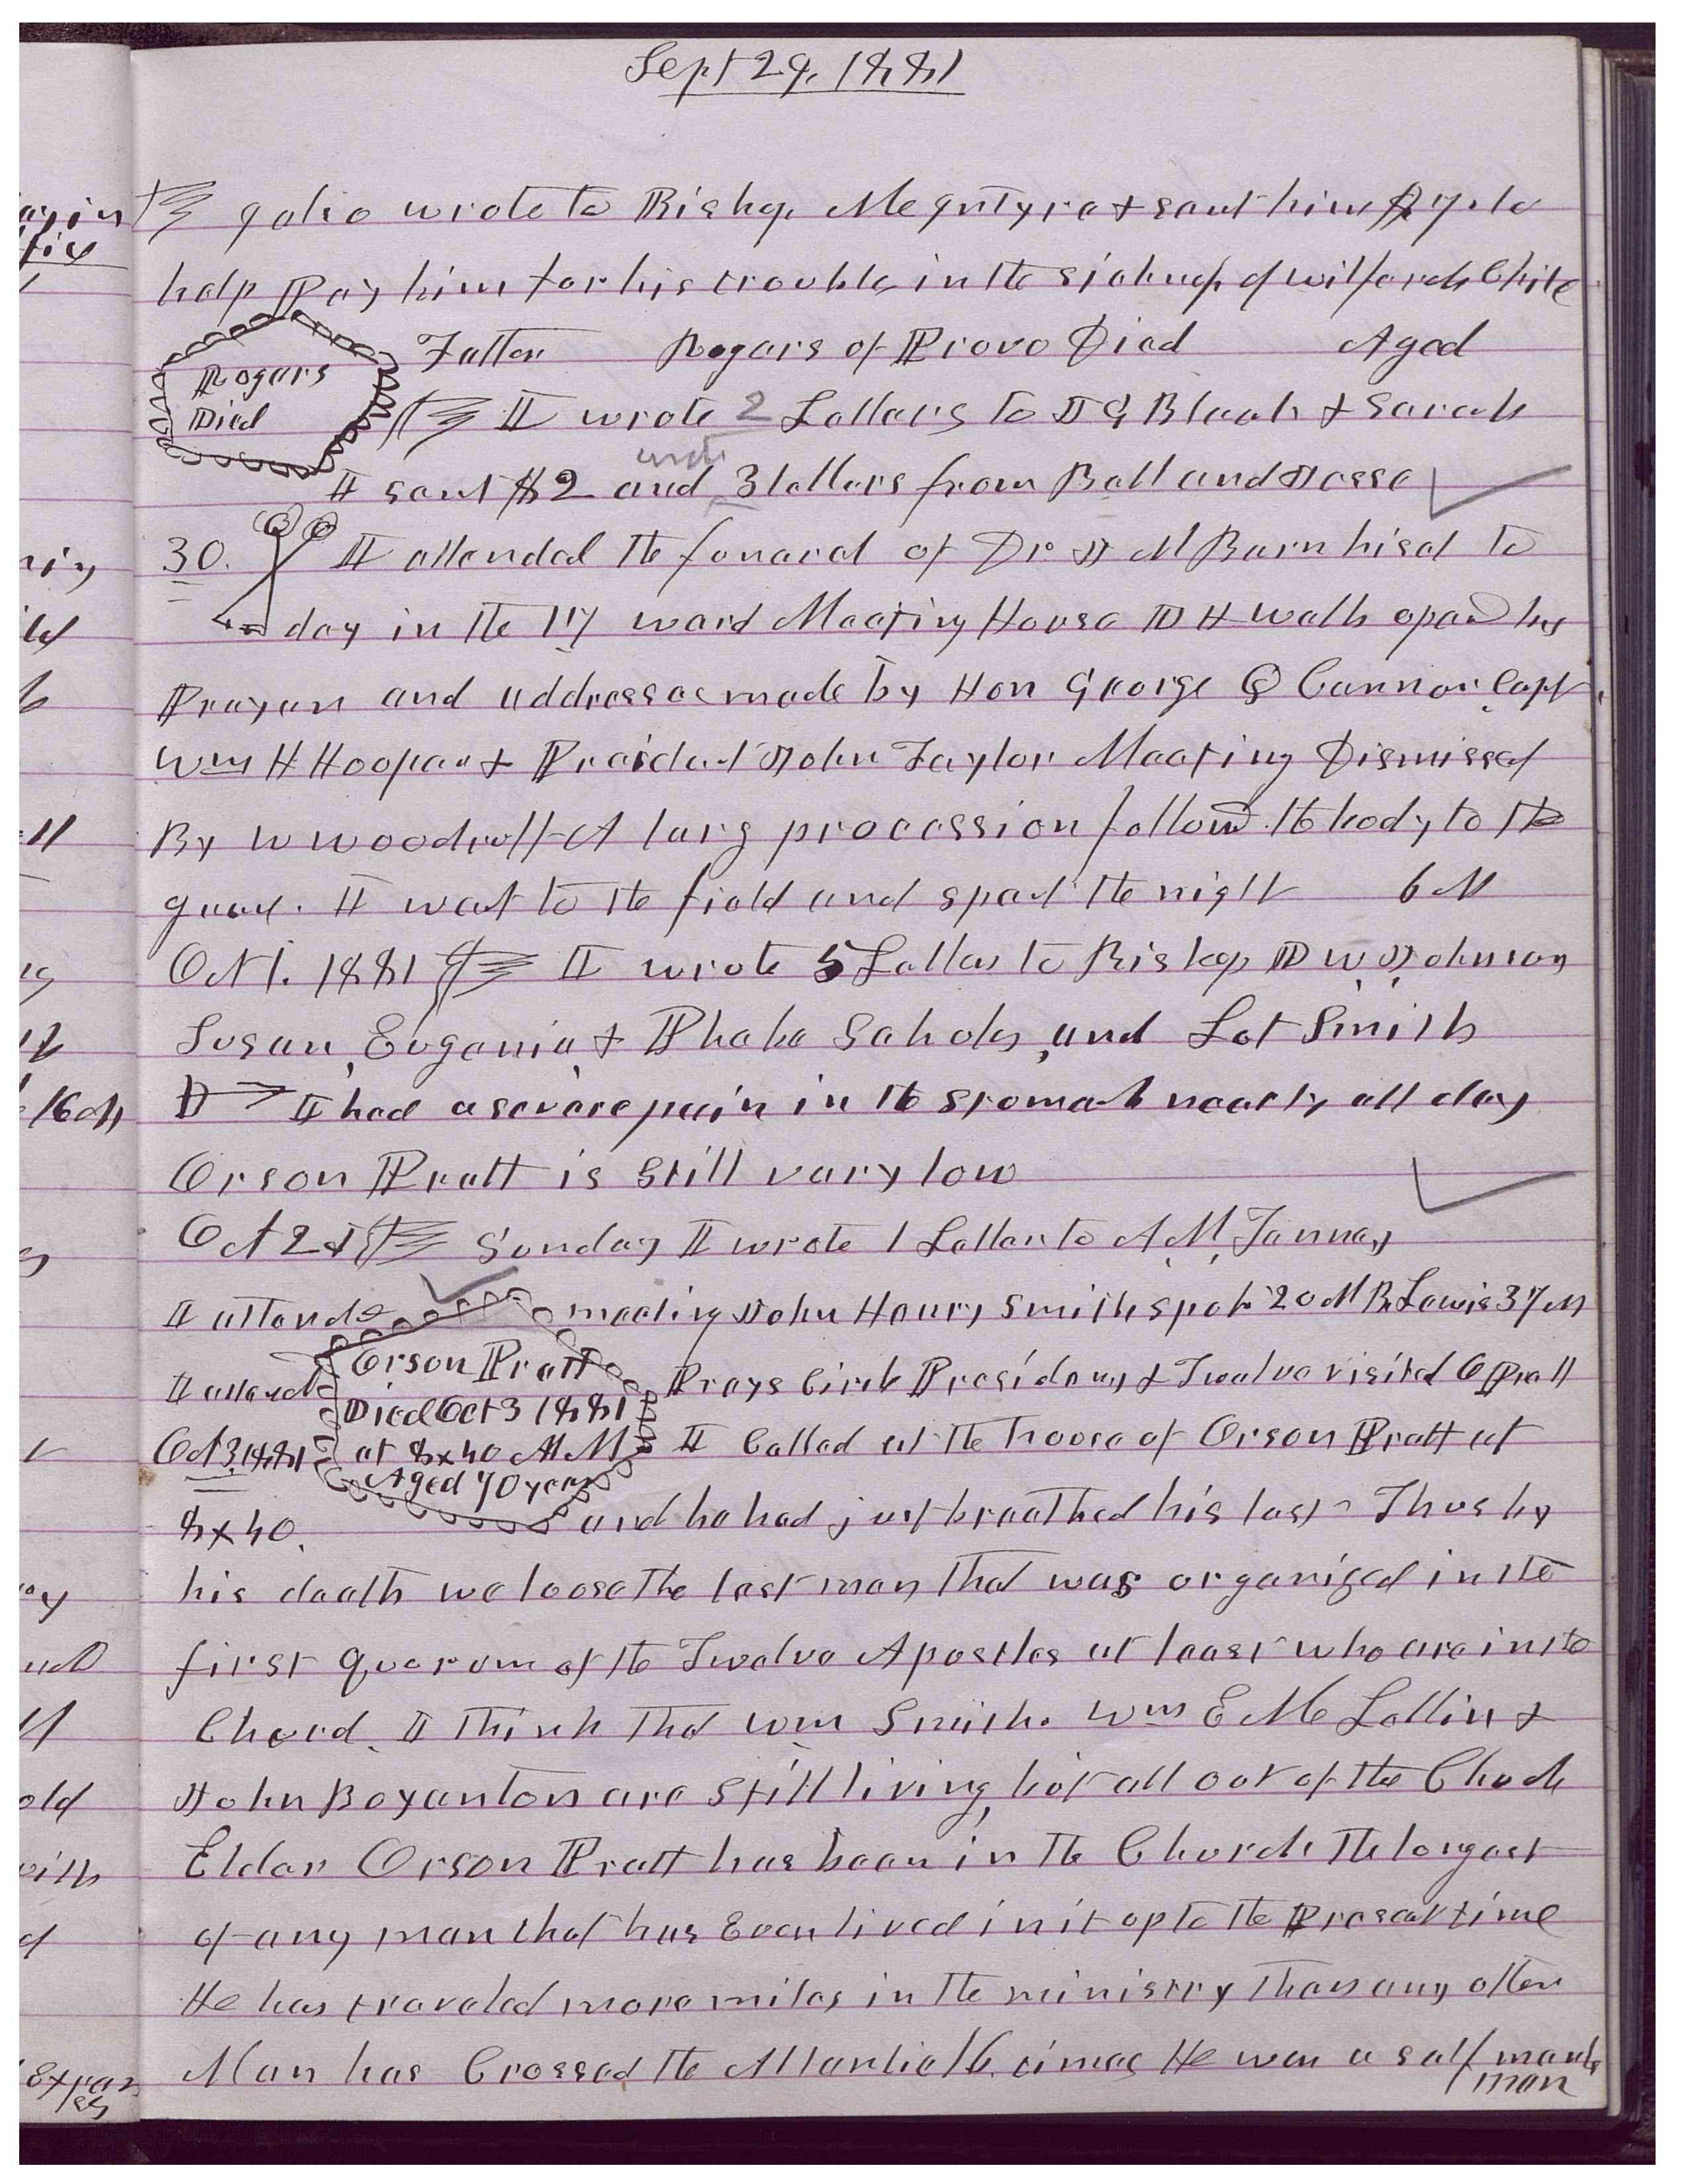 Sept 29, 1881
I also wrote to Bishop McIntyre & sent him $7. to
help Pay him for his trouble in the sickness of wilford's Child
Rogers
Died
Father Rogers of Provo Died Aged
I wrote 2 Letters to I G Bleak & Sarah
wrote
I sent $2 and 3 letters from Bell and Jesse
30. I attended the funeral of Dr. J M Bernhisel to
day in the 17 ward Meeting House D H Wells opened by
Prayer and addresses made by Hon George Q Cannon, Capt
Wm H Hooper & President John Taylor Meeting Dismissed
By W Woodruff A larg procession followed the body to the
grave. I went to the field and spent the night 6 M
Oct 1. 1881 I wrote 5 Letters to Bishop D W Johnson
Susan, Eugenia, & Phebe Scholes, and Lot Smith
I had a severe pain in the stomach nearly all day
Orson Pratt is still very low
Oct 2d Sunday I wrote 1 Letter to A M, Tenney
I attended meeting John Henry Smith spok 20 M B. Lewis 37 M
Orson Pratt
Died Oct 3 1881
at 8x40 AM
Aged 70 years
I attended Prays Circle Presidency & Twelve visited O Pratt
Oct 3. 1881 I Called at the house of Orson Pratt at
8x40. and he had just breathed his last Thus by
his death we loose the last man that was organized in the
first Quorum of the Twelve Apostles at least who are in the
Church. I think that Wm Smith. Wm E Mc Lellin &
John Boyenton are still living, but all out of the Church
Elder Orson Pratt has been in the Church the longest
of any man that has Ever lived in it up to the Present time
He has traveled more miles in the ministry than any other
Man has Crossed the Atlantic 16. times He was a self made
man